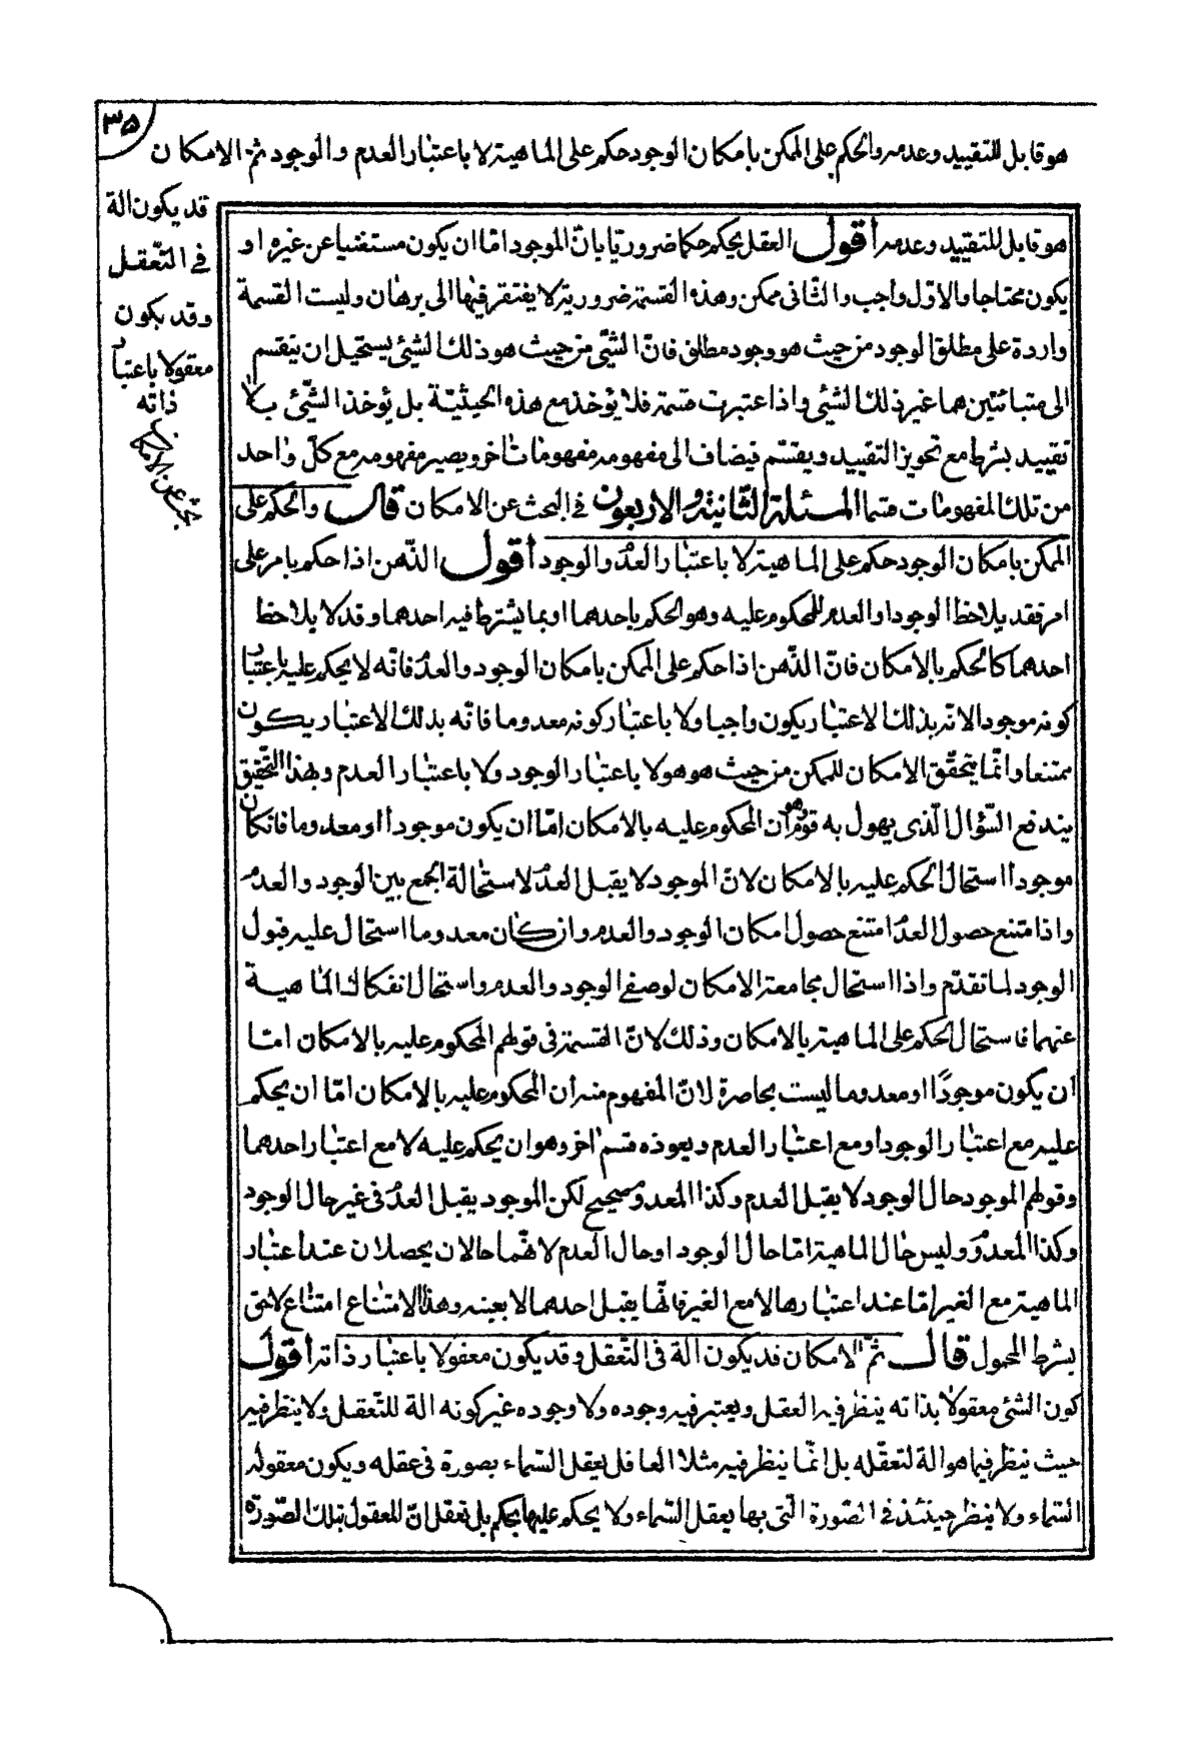 ٣٥
هو قابل للتقييد وعدمه والحكم على الممكن بامكان الوجود حكم على الماهية لا باعتبار العدم والوجود ثم الامكان
قد يكون الة
فى التعقل
وقد يكون
معقولا باعتبار
ذاته
هو قابل للتقييد وعدمه أقول العقل يحكم حكما ضروريا بانّ الموجود امّا ان يكون مستغنيا عن غيره او
يكون محتاجا والاوّل واجب والثّانى ممكن وهذه القسمة ضرورية لا يفتقر فيها الى برهان وليست القسمة
واردة على مطلق الوجود من حيث هو وجود مطلق فانّ الشّئ من حيث هو ذلك الشئ يستحيل ان ينقسم
الى متبائنين هما غير ذلك الشئ واذا اعتبرت قسمة فلا يؤخذ مع هذه الحيثيّة بل يؤخذ الشّئ بلا
تقييد بشرط مع تجويز التقييد ويقسّم فيضاف الى مفهومه مفهومات اخر ويصير مفهومه مع كلّ واحد
من تلك المفهومات قسما المسئلة الثّانية والاربعون فى البحث عن الامكان قال والحكم على
الممكن بامكان الوجود حكم على الماهية لا باعتبار العدم والوجود أقول الذّهن اذا حكم بامر على
امر فقد يلاحظ الوجود او العدم للمحكوم عليه وهو الحكم باحدهما او بما يشترط فيه احدهما وقد لا يلاحظ
احدهما كالحكم بالامكان فانّ الذّهن اذا حكم على الممكن بامكان الوجود والعدم فانّه لا يحكم عليه باعتبار
كونه موجودا لانّه بذلك الاعتبار يكون واجبا ولا باعتبار كونه معدوما فانّه بذلك الاعتبار يكون
ممتنعا وانّما يتحقّق الامكان للممكن من حيث هو هو لا باعتبار الوجود ولا باعتبار العدم وبهذا التّحقيق
يندفع السّؤال الّذى يهول به قوم وهو أن المحكوم عليه بالامكان امّا ان يكون موجودا او معدوما فان كان
موجودا استحال الحكم عليه بالامكان لانّ الموجود لا يقبل العدم لاستحالة الجمع بين الوجود والعدم
واذا امتنع حصول العدم امتنع حصول امكان الوجود والعدم وان كان معدوما استحال عليه قبول
الوجود لما تقدّم واذا استحال مجامعة الامكان لوصفى الوجود والعدم واستحال انفكاك الماهية
عنهما فاستحال الحكم على الماهية بالامكان وذلك لانّ القسمة فى قولهم المحكوم عليه بالامكان امّا
أن يكون موجودًا او معدوما ليست بحاصرة لانّ المفهوم منه أن المحكوم عليه بالامكان امّا ان يحكم
عليه مع اعتبار الوجود او مع اعتبار العدم ويعوذه قسم اخر وهو ان يحكم عليه لا مع اعتبار احدهما
وقولهم الموجود حال الوجود لا يقبل العدم وكذا المعدوم صحيح لكن الموجود يقبل العدم فى غير حال الوجود
وكذا المعدوم وليس حال الماهية امّا حال الوجود او حال العدم لانّهما حالان يحصلان عند اعتبار
الماهية مع الغير امّا عند اعتبارها لا مع الغير فانّها يقبل احدهما لا بعينه وهذا الامتناع امتناع لاحق
بشرط المحمول قال ثمّ الامكان قد يكون الة فى التّعقل وقد يكون معقولا باعتبار ذاته أقول
كون الشئ معقولا بذاته ينظر فيه العقل ويعتبر فيه وجوده ولا وجوده غير كونه الة للتّعقل ولا ينظر فيه
حيث ينظر فيما هو الة لتعقّله بل انّما ينظر فيه مثلا العاقل يعقل السّماء بصورة فى عقله ويكون معقوله
السّماء ولا ينظر حينئذ فى الصّورة الّتى بها يعقل السّماء ولا يحكم عليها بحكم بل تعقل انّ المعقول بتلك الصّورة